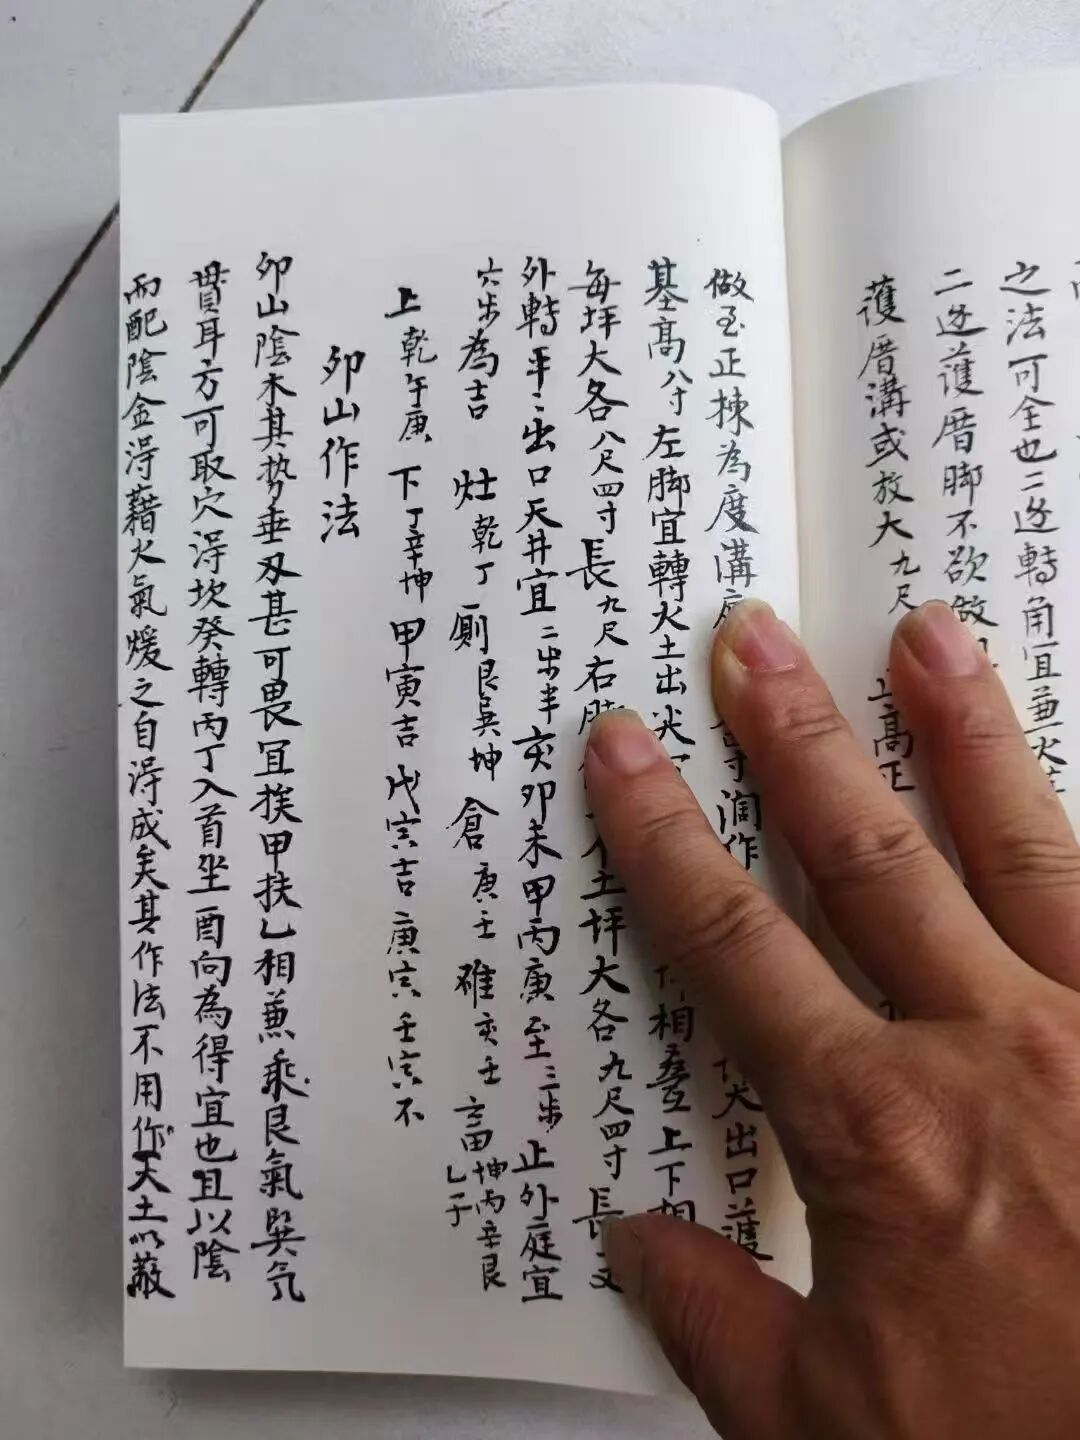 之法可全也二边轉角宜兼火
二边護厝脚不欲做
護厝溝或放大九尺
上高正
做至正棟為度溝
寸濶作
出口護
基高八寸左脚宜轉火土出尖
相疊上下相
每坪大各八尺四寸長九尺右脚
土坪大各九尺四寸長
外轉平二出口天井宜二步半亥卯未甲丙庚至三步止外庭宜
六步為吉 灶乾丁 厠艮巽坤 倉庚壬 碓亥壬 畜坤丙辛艮乙于
上乾午庚 下丁辛坤 甲寅吉 戊寅吉 庚寅 壬寅不
卯山作法
卯山陰木其势垂刃甚可畏宜挨甲扶乙相兼乘艮氣巽氕
貫耳方可取穴淂坎癸轉丙丁入首坐酉向為得宜也且以陰
而配陰金淂藉火氣煖之自淂成矣其作法不用作天土以蔽